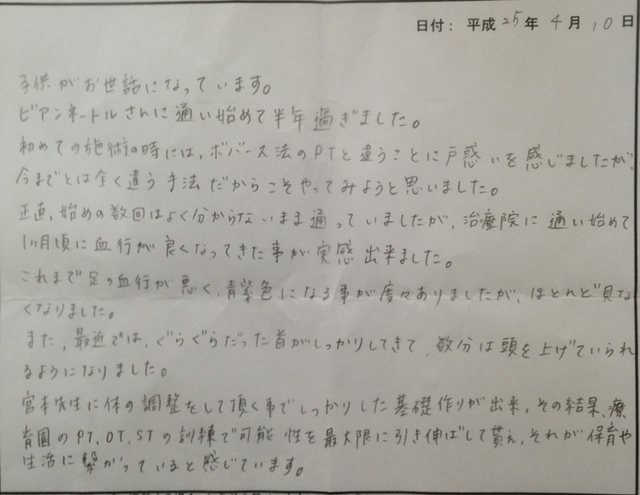 日付：平成25年4月10日
子供がお世話になっています。
ビアンネートルさんに通い始めて半年過ぎました。
初めての施術の時には、ボバース法のPTと違うことに戸惑いを感じましたが、
今までとは全く違う手法だからこそやってみようと思いました。
正直、始めの数回はよく分からないまま通っていましたが、治療院に通い始めて
1ヶ月頃に血行が良くなってきた事が実感出来ました。
これまで足の血行が悪く、青紫色になる事が度々ありましたが、ほとんど見な
くなりました。
また、最近では、ぐらぐらだった首がしっかりしてきて、数分は頭を上げていられ
るようになりました。
宮本先生に体の調整をして頂く事でしっかりした基礎作りが出来、その結果、療
育園のPT、OT、STの訓練で可能性を最大限に引き伸ばして貰え、それが保育や
生活に繋がっていると感じています。